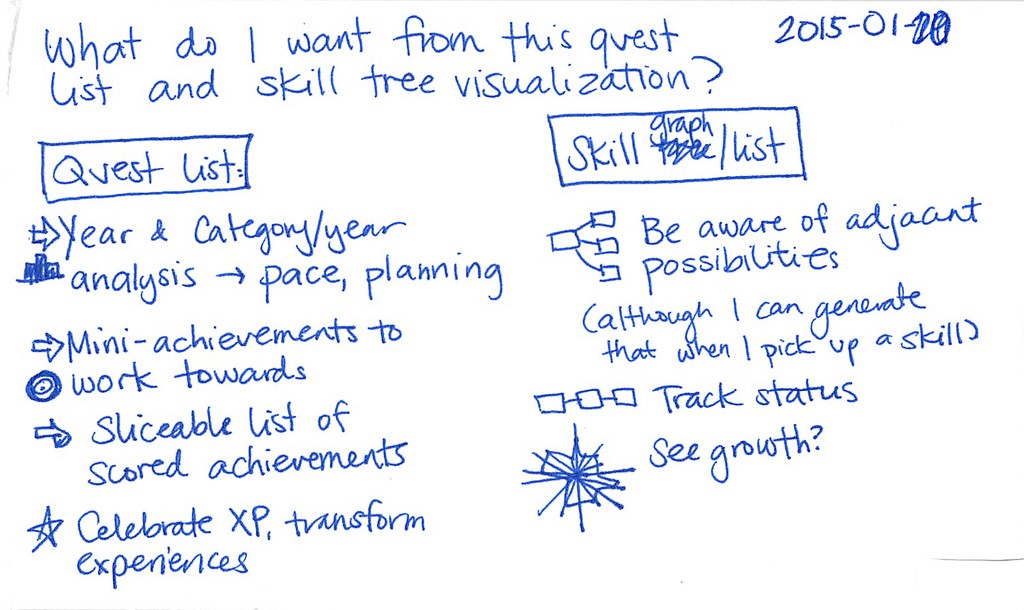 What do I want from this quest
list and skill tree visualization?
2015-01-
Quest list:
Year & Category/year
analysis → pace, planning
Mini-achievements to
work towards
Sliceable list of
scored achievements
Celebrate XP, transform
experiences
Skill graph/list
Be aware of adjacant
possibilities
(although I can generate
that when I pick up a skill)
Track status
See growth?